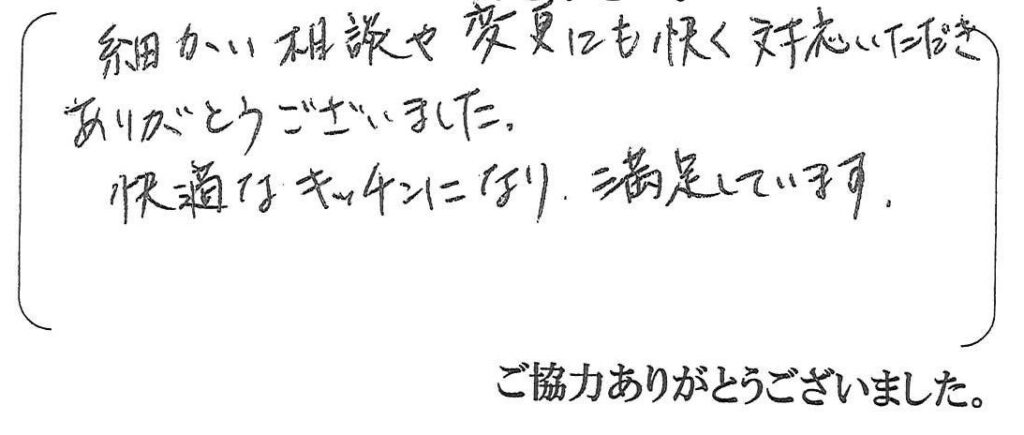 細かい相談や変更にも快く対応いただき
ありがとうございました。
快適なキッチンになり、満足しています。
ご協力ありがとうございました。